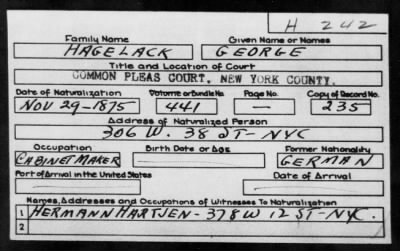 H 242
Family Name Given Name or Names
HAGELACK GEORGE
Title and Location of Court
COMMON PLEAS COURT, NEW YORK COUNTY.
Date of Naturalization Volume or Bundle No. Page No. Copy of Record No.
NOV 29-1875 441 — 235
Address of Naturalized Person
306 W. 38 ST-NYC
Occupation Birth Date or Age Former Nationality
CABINET MAKER GERMAN
Port of Arrival in the United States Date of Arrival
Names, Addresses and Occupations of Witnesses To Naturalization
1 HERMANN HARTJEN-378 W 12 ST-NYC.
2